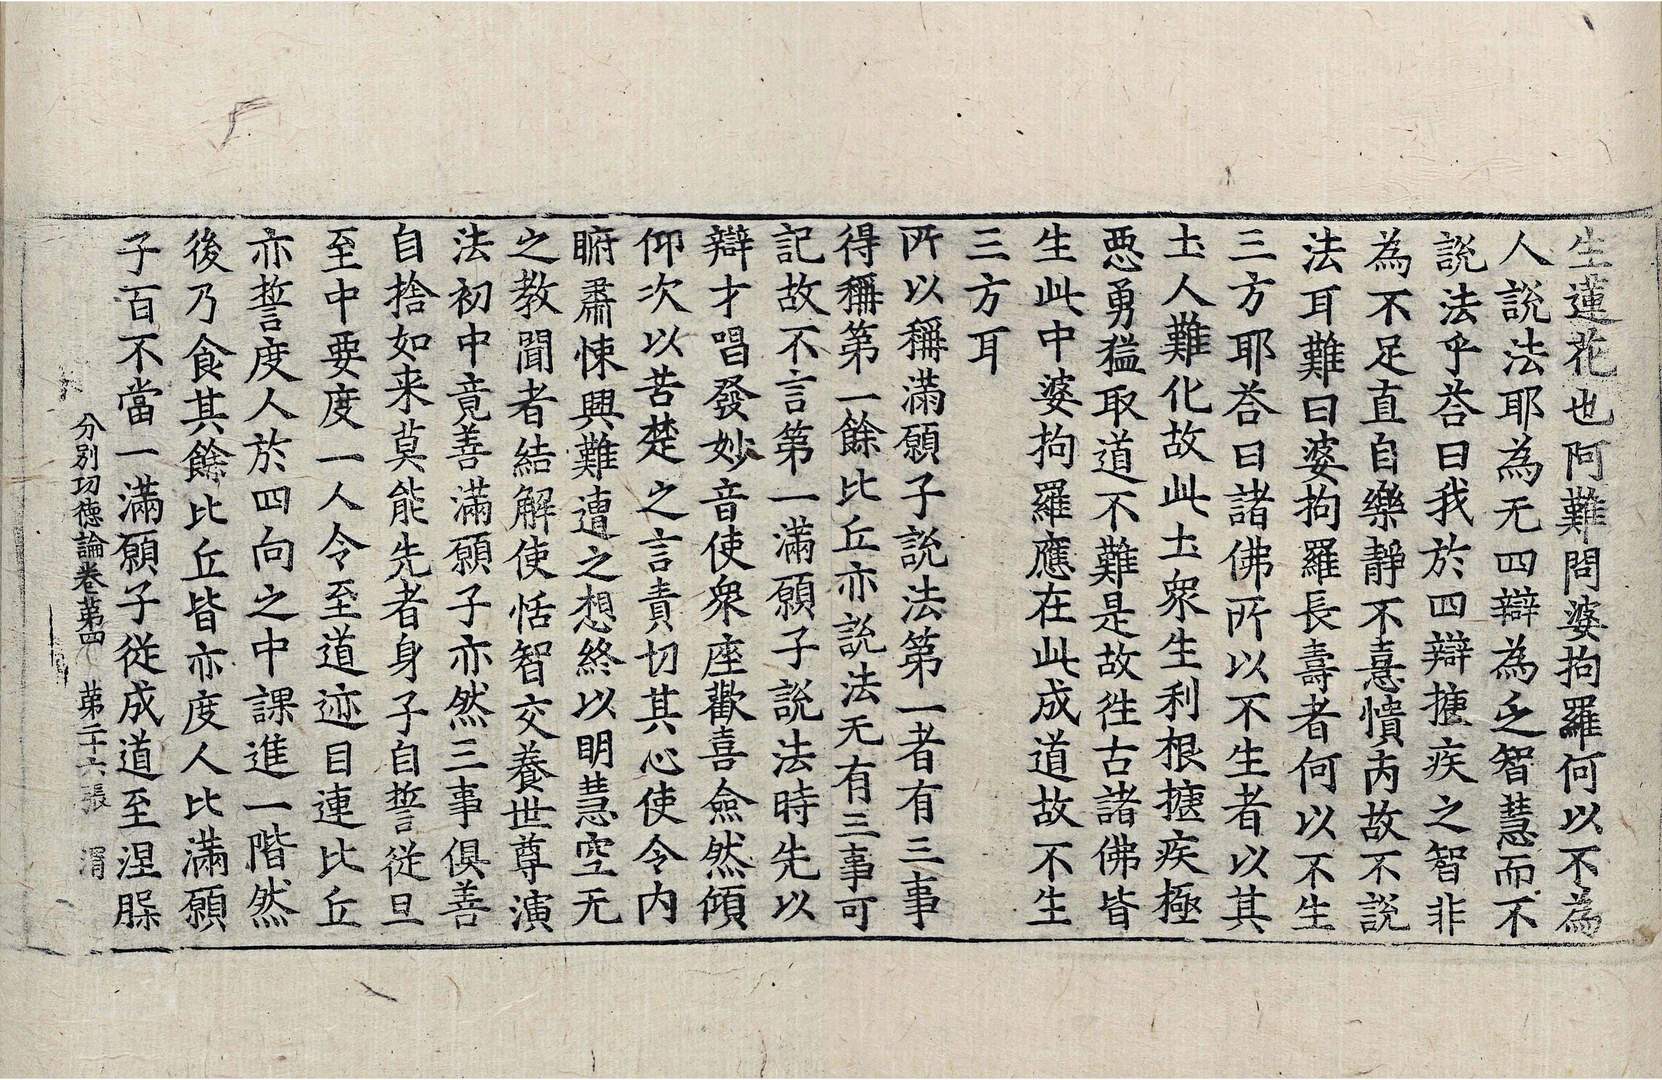 生蓮花也阿難問婆拘羅何以不為
人說法耶為无四辯為乏智慧而不
說法乎荅曰我於四辯揵疾之智非
為不足直自樂靜不憙憒丙故不說
法耳難曰婆拘羅長壽者何以不生
三方耶荅曰諸佛所以不生者以其
土人難化故此土衆生利根揵疾極
惡勇猛取道不難是故往古諸佛皆
生此中婆拘羅應在此成道故不生
三方耳
所以稱滿願子說法第一者有三事
得稱第一餘比丘亦說法无有三事可
記故不言第一滿願子說法時先以
辯才唱發妙音使衆座歡喜僉然傾
仰次以苦楚之言責切其心使令內
肅悚興難遭之想終以明慧空无
之教聞者結解使恬智交養世尊演
法初中竟善滿願子亦然三事俱善
自捨如来莫能先者身子自誓從旦
至中要度一人令至道迹目連比丘
亦誓度人於四向之中課進一階然
後乃食其餘比丘皆亦度人比滿願
子百不當一滿願子從成道至涅
分別功德論卷第四 第二十六張